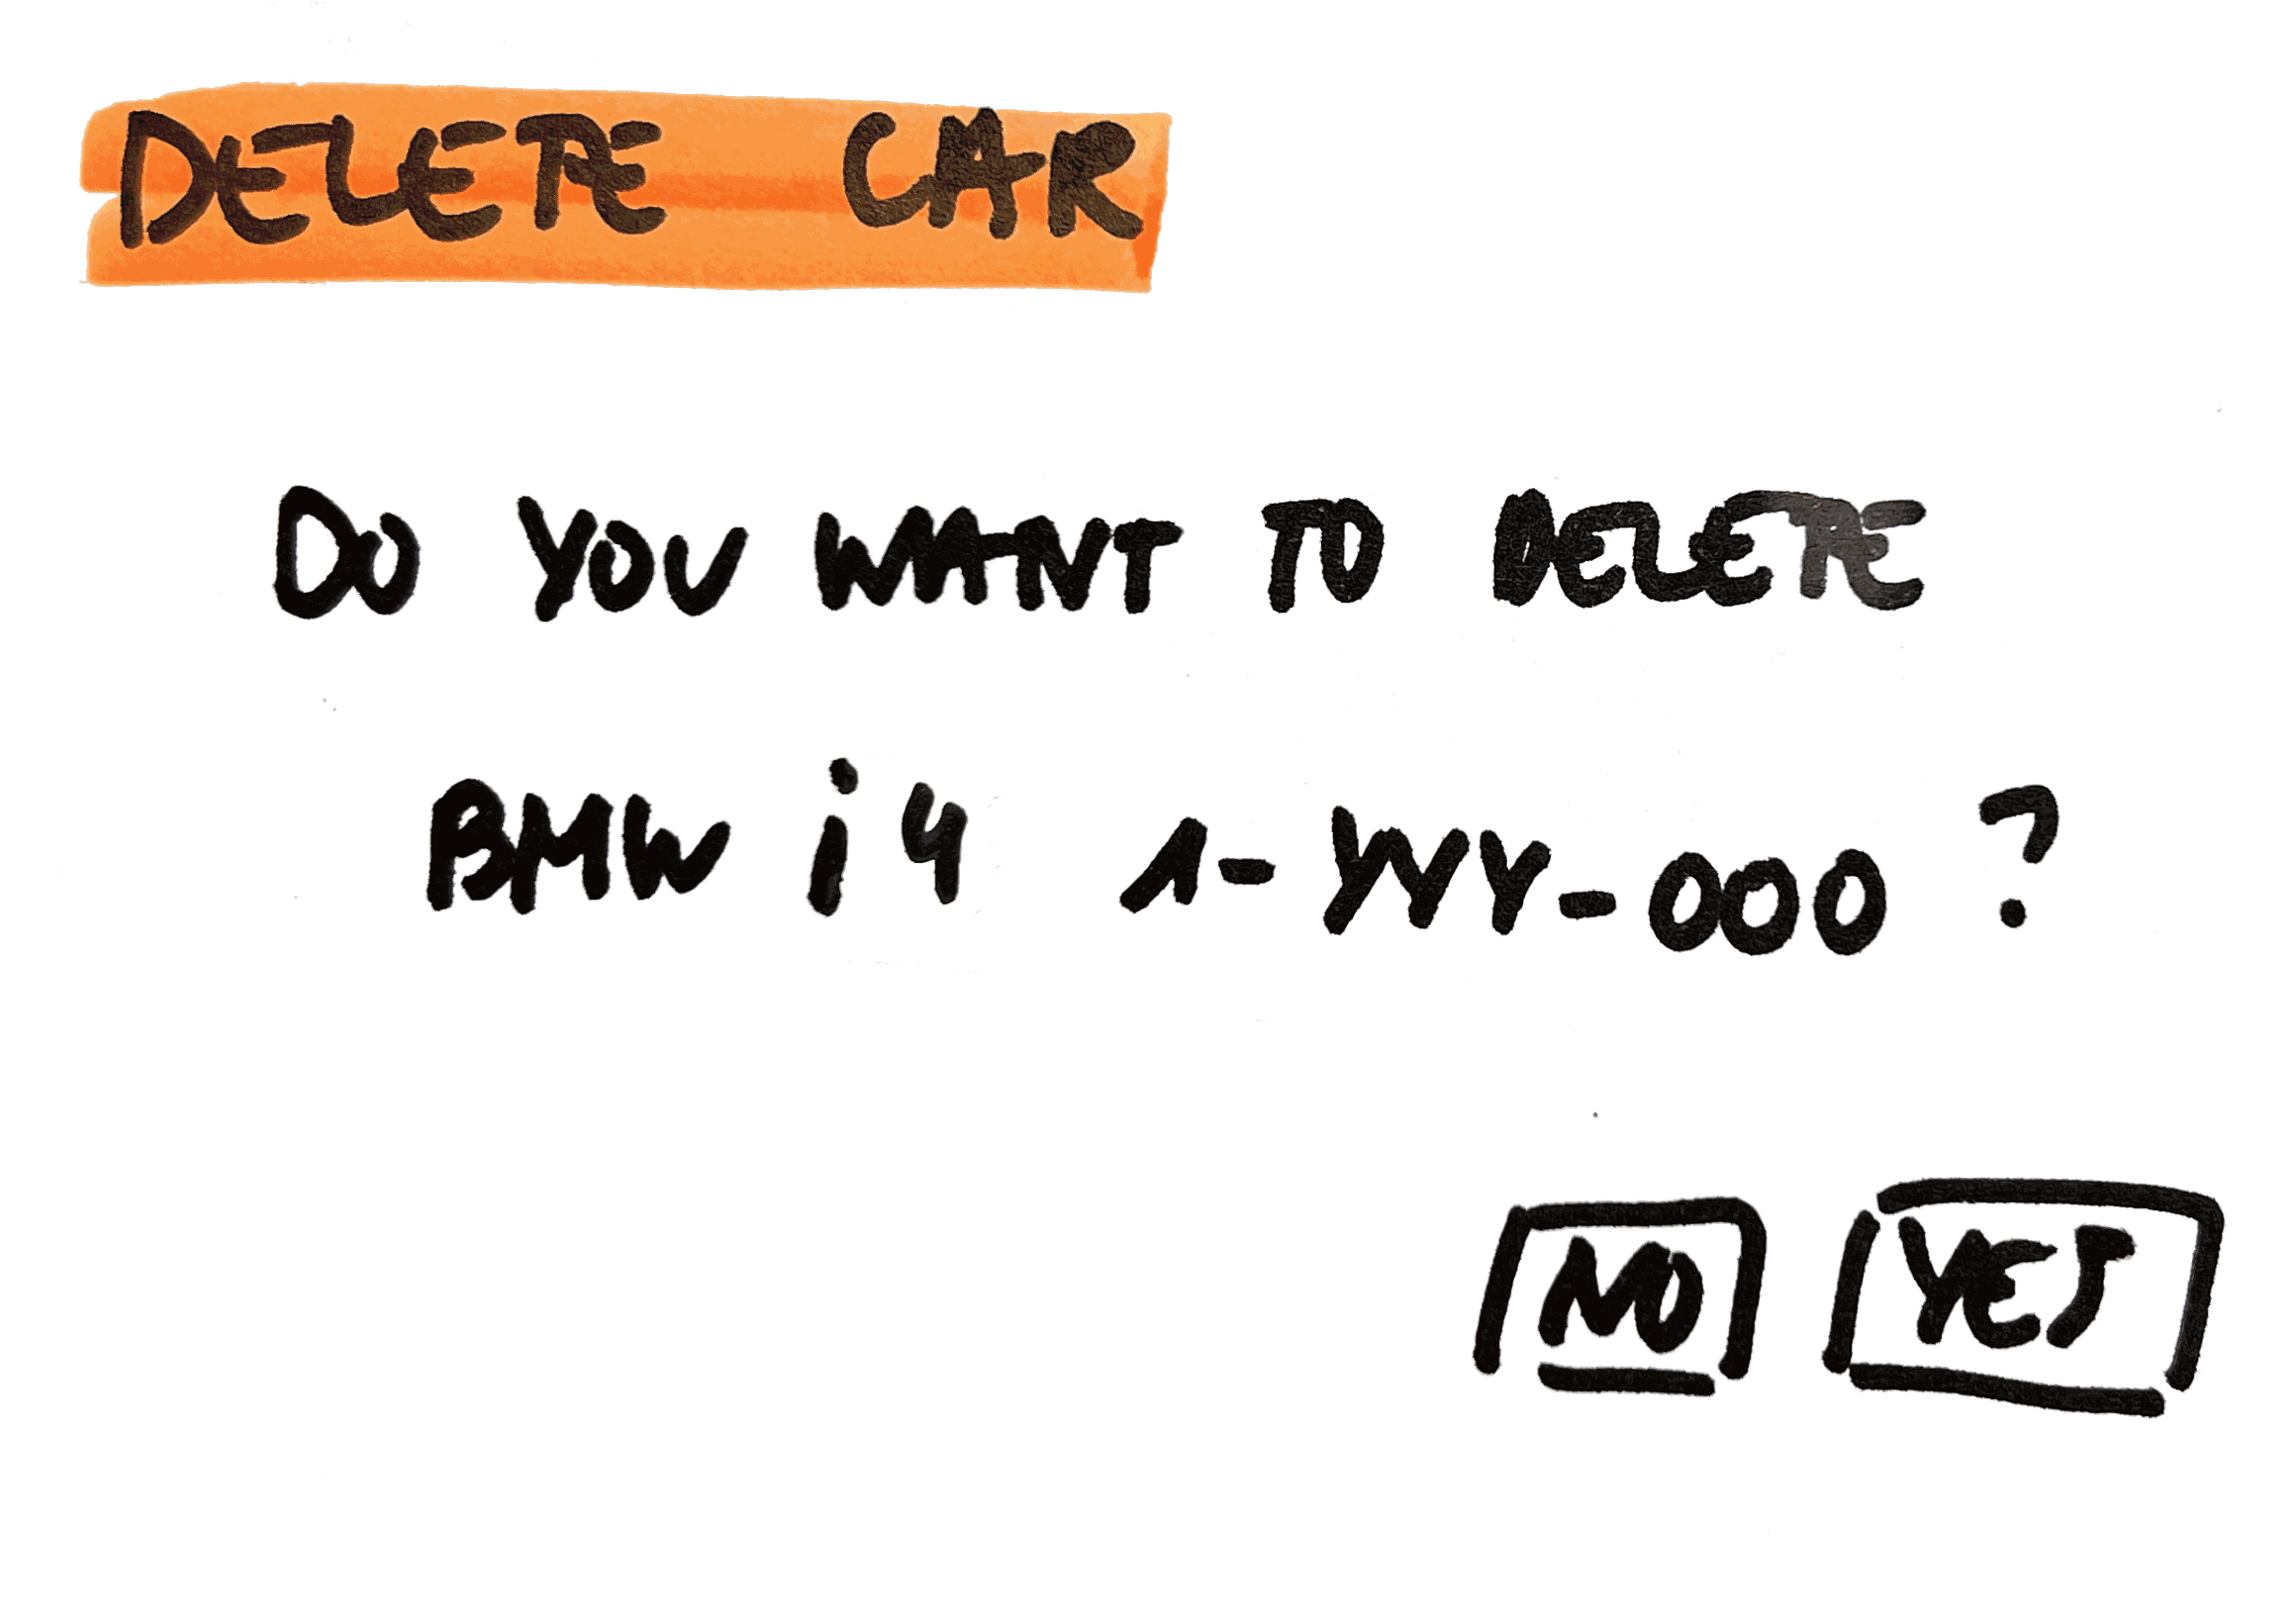 DELETE CAR
DO YOU WANT TO DELETE
BMW i4 1-YYY-000 ?
NO YES